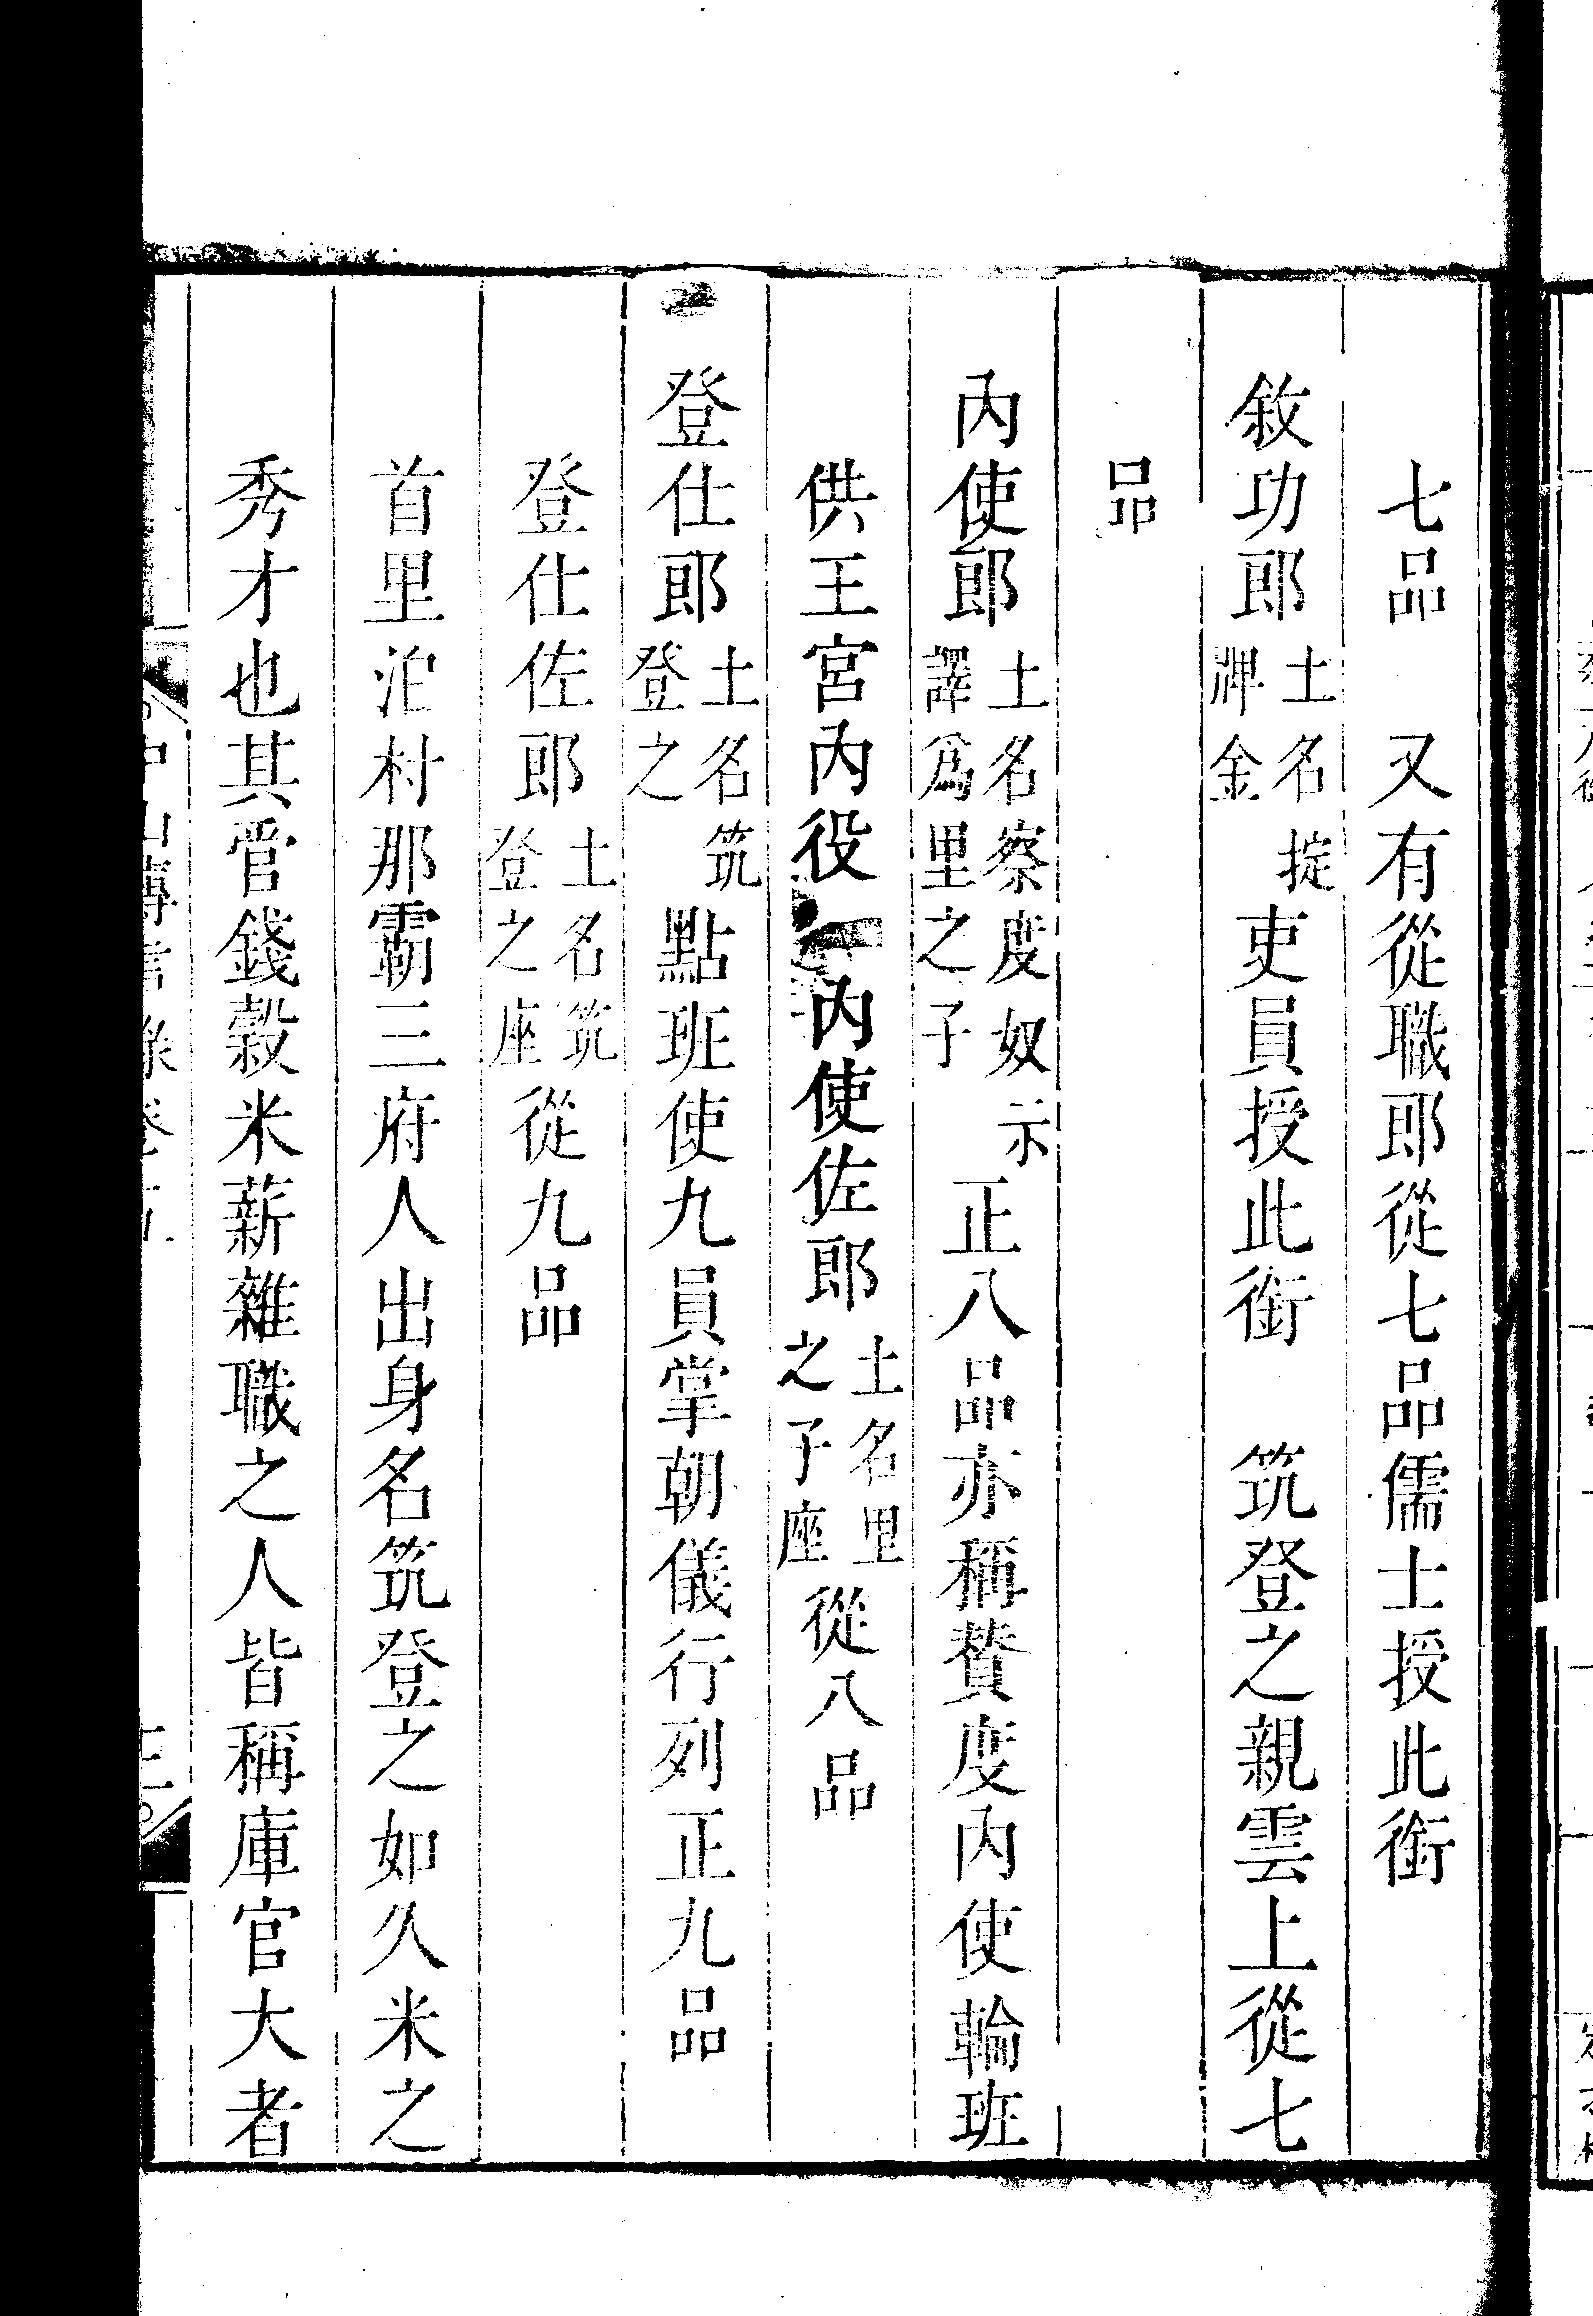 七品　又有從職郎從七品儒士授此銜
敘功郎土名掟牌金吏員授此銜　筑登之親雲上從七
品
內使郎土名察度奴示譯爲里之子正八品亦稱贊度內使輪班
供王宮內役　內使佐郎土名里之子座從八品
登仕郎土名筑登之點班使九員掌朝儀行列正九品
登仕佐郎土名筑登之座從九品
首里泊村那霸三府人出身名筑登之如久米之
秀才也其管錢穀米薪雜職之人皆稱庫官大者
中山傳信錄卷五